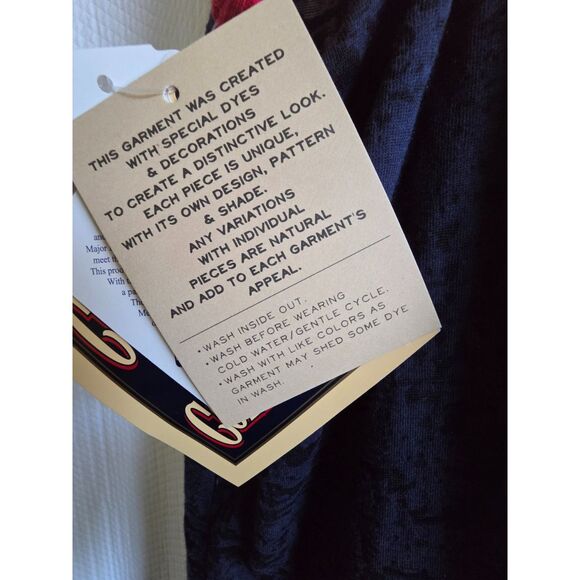 THIS GARMENT WAS CREATED
WITH SPECIAL DYES
& DECORATIONS
TO CREATE A DISTINCTIVE LOOK.
EACH PIECE IS UNIQUE,
WITH ITS OWN DESIGN, PATTERN
& SHADE.
ANY VARIATIONS
WITH INDIVIDUAL
PIECES ARE NATURAL
AND ADD TO EACH GARMENT'S
APPEAL.
• WASH INSIDE OUT.
• WASH BEFORE WEARING
COLD WATER/GENTLE CYCLE.
• WASH WITH LIKE COLORS AS
GARMENT MAY SHED SOME DYE
IN WASH.
Major
meet the
This prod
With
a pa